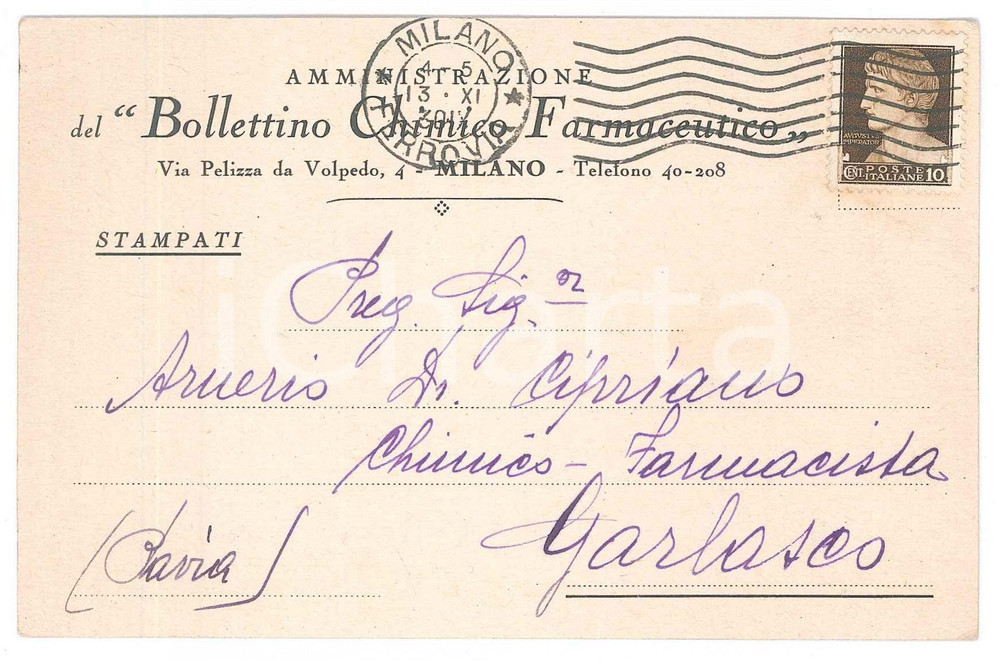 MILANO
4-5
13·XI
* FERROVIA *
AMMINISTRAZIONE
del "Bollettino Chimico Farmaceutico„
Via Pelizza da Volpedo, 4 - MILANO - Telefono 40-208
AUGUSTUS
IMPERATOR
POSTE
CENT. ITALIANE 10
STAMPATI
Preg. Sig.or
Arnerio Dr. Cipriano
Chimico - Farmacista
Garlasco
(Pavia)
iCharta